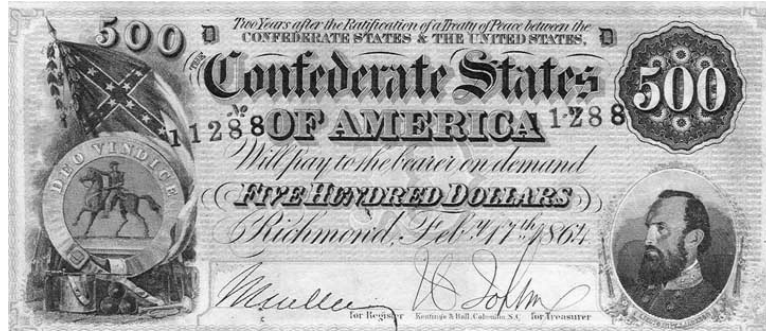 500 D Two Years after the Ratification of a Treaty of Peace between the D
CONFEDERATE STATES & THE UNITED STATES,
THE Confederate States 500
No 11288 OF AMERICA No 1288
Will pay to the bearer on demand
DEO VINDICE
FIVE HUNDRED DOLLARS
Richmond, Feby. 17th. 1864
for Register Keatinge & Ball, Columbia, S.C. for Treasurer